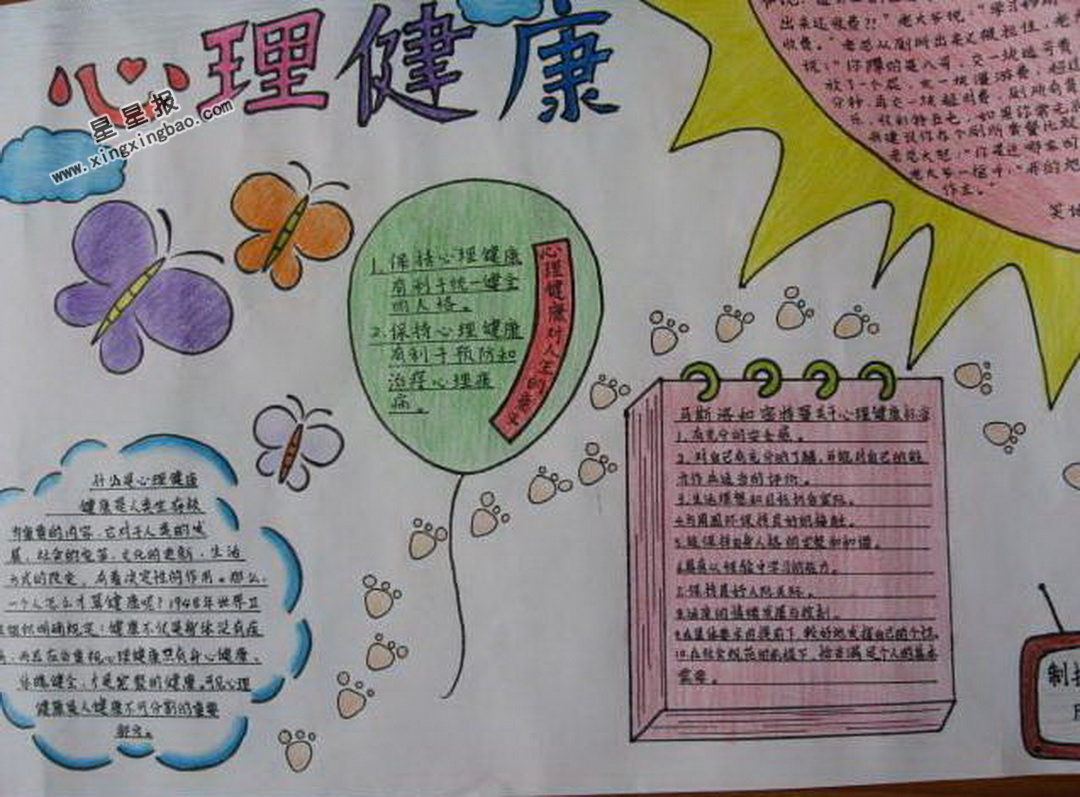 心理健康
星星报
www.xingxingbao.com
出来还收费?!"老大爷说:"学习
收费。"老总从厕所出来又被拦住,老大
说:"你蹲的是八号,交一块选号费
放了一个屁,交一块漫游费,超过
分钟,再交一块超时费
来建议你办个厕所套餐比较
老总大怒:"你是这哪家的
老大爷一愣:"
作主。"
1.保持心理健康
有利于统一健全
的人格。
2.保持心理健康
有利于预防和
治疗心理疾
病。
心理健康对人生的意义
马斯洛和密特曼关于心理健康标准
1.有充分的安全感。
2.对自己有充分的了解,并能对自己的能
力作出适当的评价。
3.生活理想和目标切合实际。
4.与周围环保持良好的接触。
5.能保持自身人格的完整和和谐。
6.具有从经验中学习的能力。
7.保持良好人际关系。
8.适度的情绪发展与控制。
9.在集体要求的提前下,较好地发挥自己的个性。
10.在社会规范的前提下,恰当满足个人的基本
需要。
什么是心理健康
健康是人类生存极
为重要的内容,它对于人类的发
展,社会的变革,文化的更新,生活
方式的改变,有着决定性的作用。那么,
一个人怎么才算健康呢?1948年世界卫
生组织明确规定:健康不仅是躯体没有疾
心理健康只有身心健康、
体魄健全,才是完整的健康。可见心理
健康是人健康不可分割的重要
部分。
制